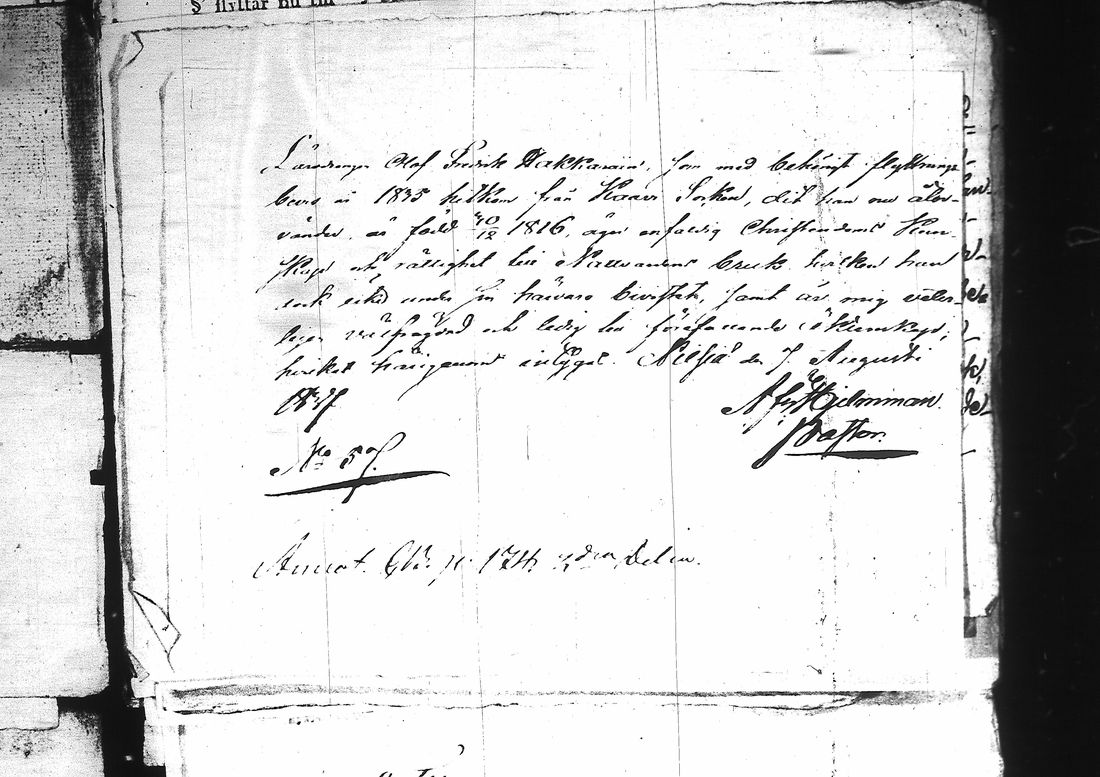 § flyttar nu till
Lärodrängen Olof Fredrik Hakkarain, som med behörigt flyttnings
bevis år 1835 hitkom från Kaavi Socken, dit han nu åter-
vänder, är född 30/12 1816, äger enfaldig Christendoms Kun-
skap och rättighet till Nattvardens bruk hvilken han
ock under sin härvaro bevistat, samt är mig veter-
ligen välfrägdad och ledig till förefallande äktenskap,
hvilket härigenom intygas. Nilsiä den 7 Augusti
1837
A. Hjelmman.
Pastor.
No 57.
Annot. p. 174 2dra Delen.